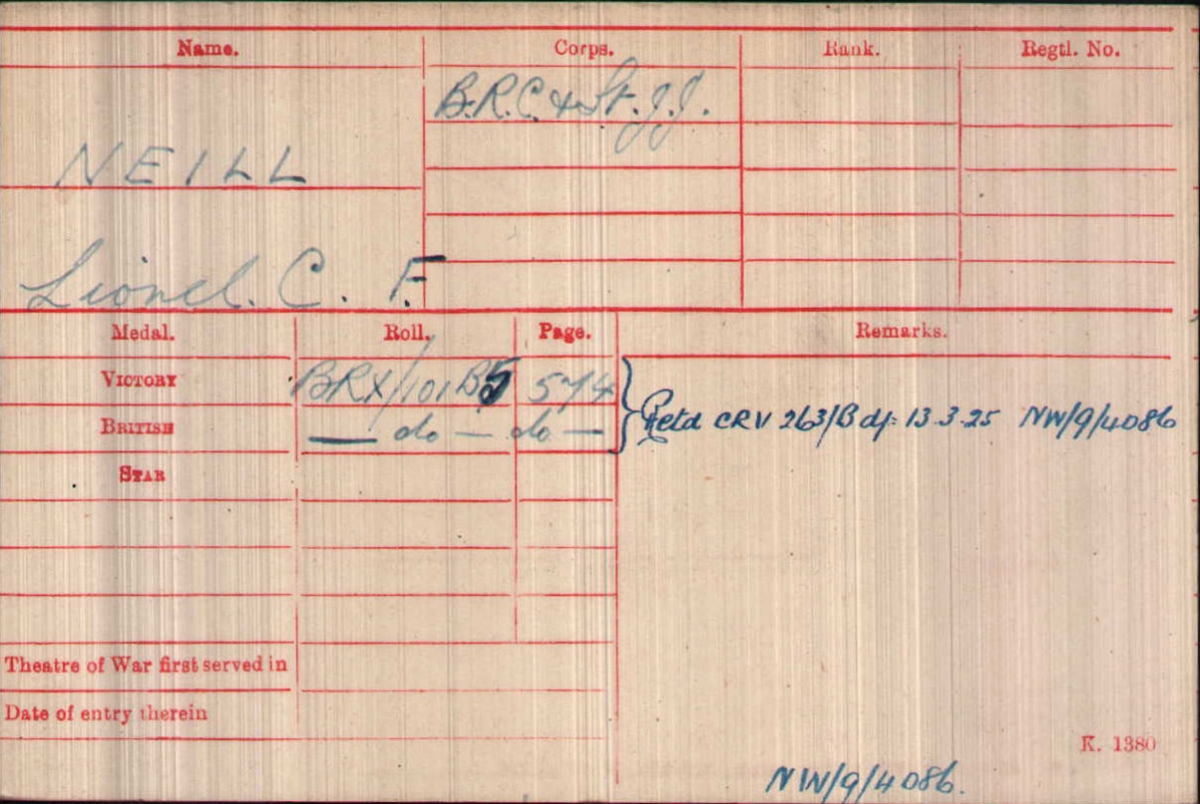 Name. Corps. Rank. Regtl. No.
B.R.C. & St. J.J.
NEILL
Lionel. C. F.
Medal. Roll. Page. Remarks.
VICTORY BRX/101B5 574
BRITISH — do — do —
Retd CRV 263/B d/- 13.3.25 NW/9/4086
STAR
Theatre of War first served in
Date of entry therein
K. 1380
NW/9/4086.